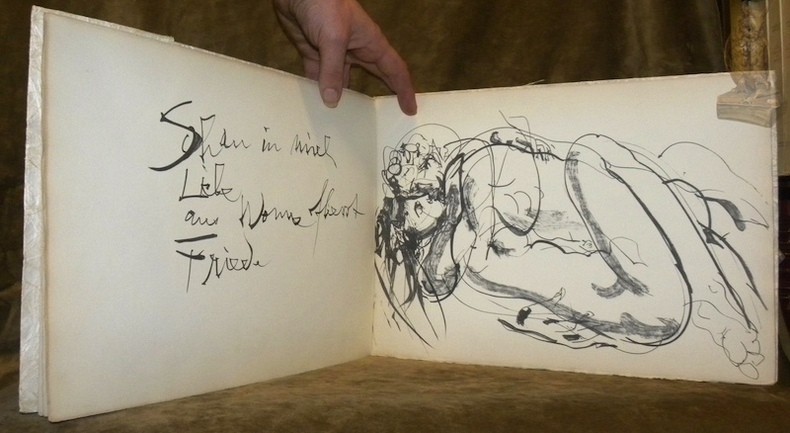 Schau in mich
Liebe
aus Wonne
Friede